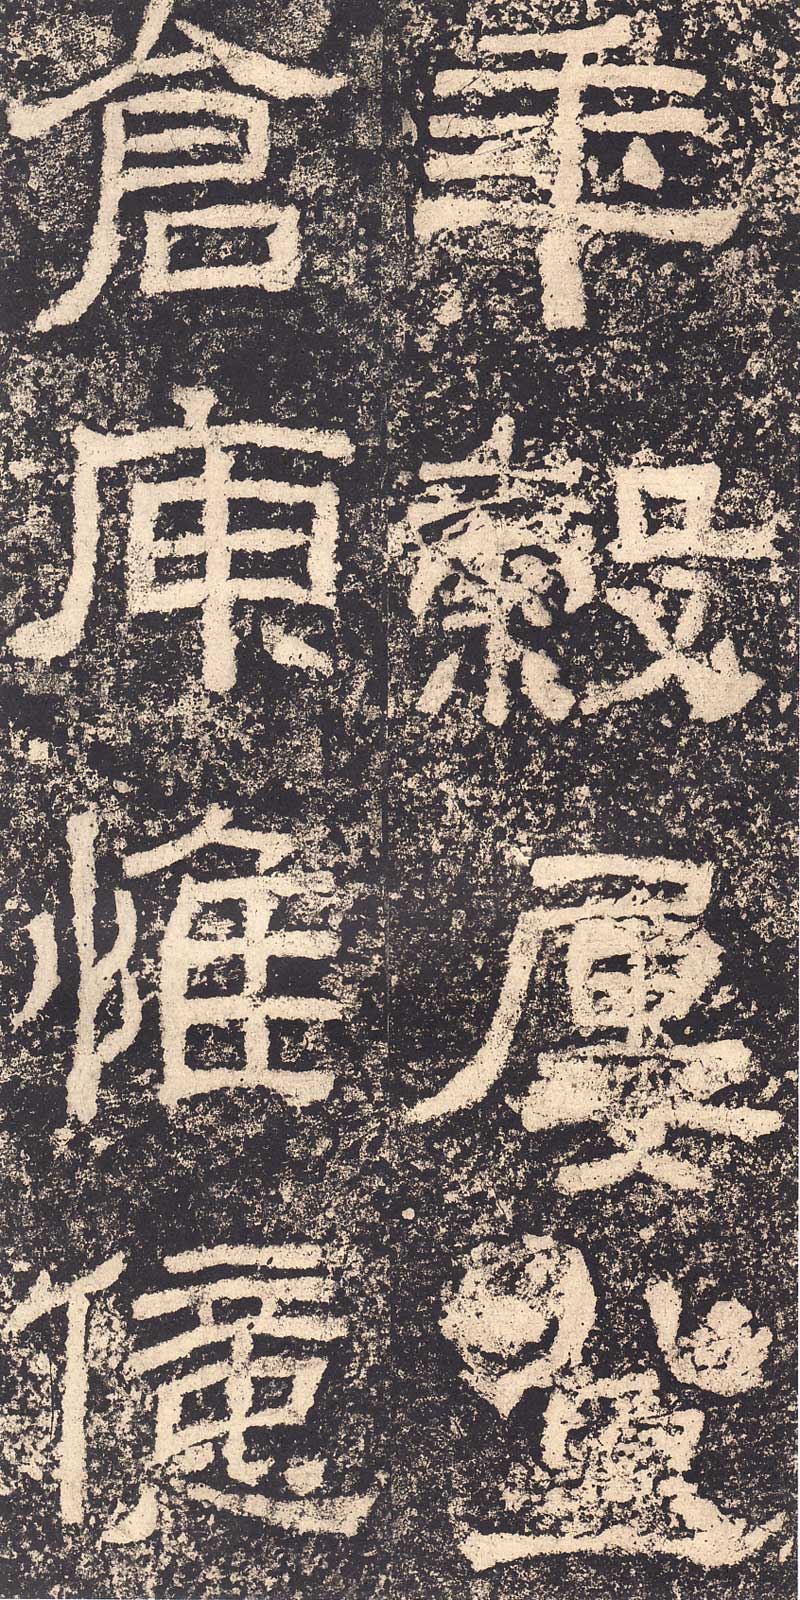 年穀屢登
倉庾惟億